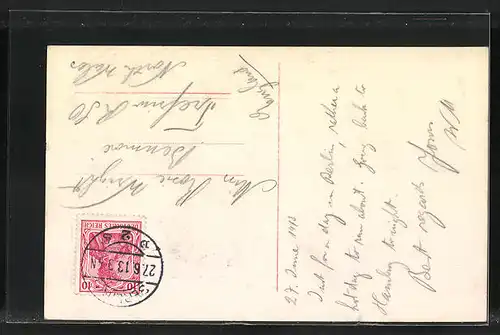 27. June 1913
Just for a day in Berlin, rather a
holiday to run about. Going back to
Hamburg tonight.
Best regards
Yours
WM
Miss Rose Wright
Benmore
Trefriw R.S.O
North Wales
England
DEUTSCHES REICH
10
27.6.13